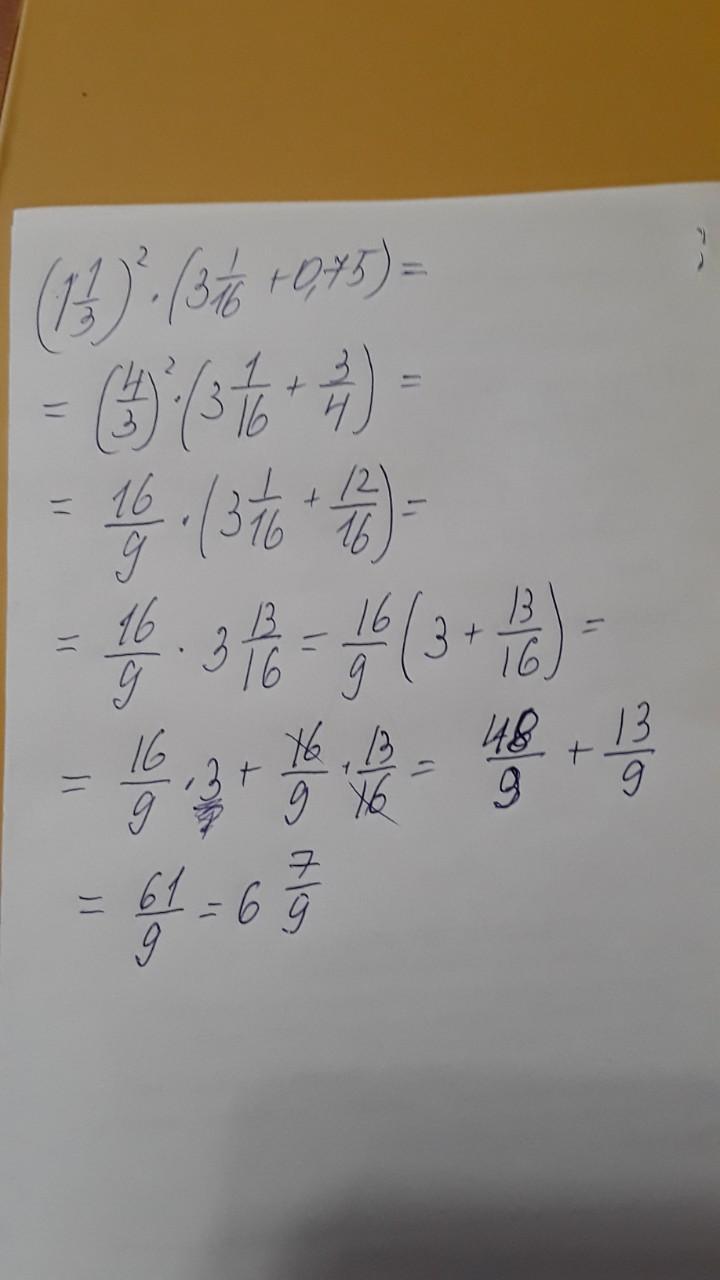 (1 1/3)² · (3 1/16 + 0,75) =
= (4/3)² · (3 1/16 + 3/4) =
= 16/9 · (3 1/16 + 12/16) =
= 16/9 · 3 13/16 = 16/9 (3 + 13/16) =
= 16/9 · 3 + 16/9 · 13/16 = 48/9 + 13/9
= 61/9 = 6 7/9